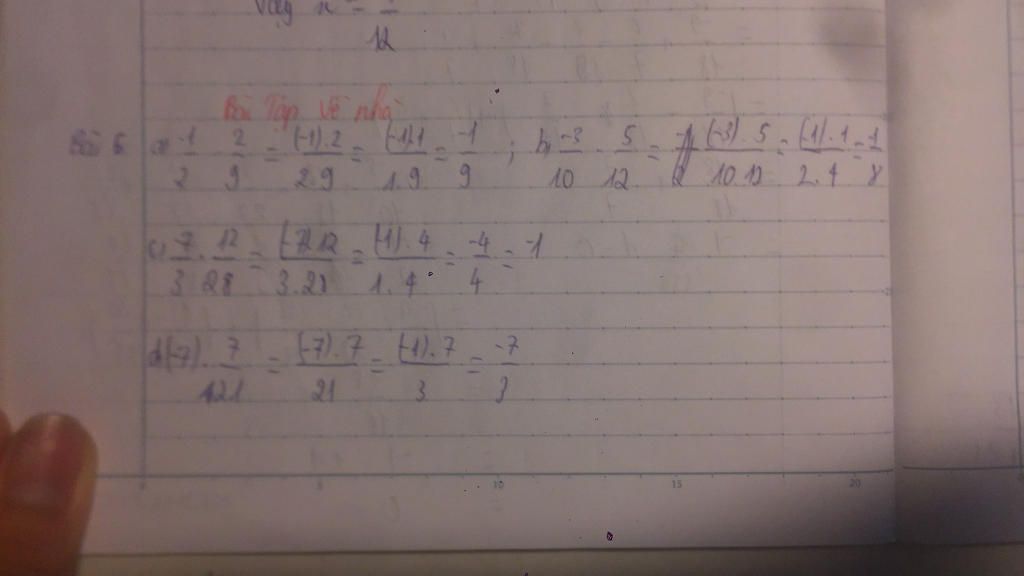 Vậy x =
12
Bài Tập Về nhà
Bài 6 a) -1/2 . 2/9 = (-1).2/2.9 = (-1).1/1.9 = -1/9 ; b) -3/10 . 5/12 = (-3).5/10.12 = (-1).1/2.4 = -1/8
c) -7/3 . 12/28 = (-7).12/3.28 = (-1).4/1.4 = -4/4 = -1
d) (-7) . 7/21 = (-7).7/21 = (-1).7/3 = -7/3
5 10 15 20